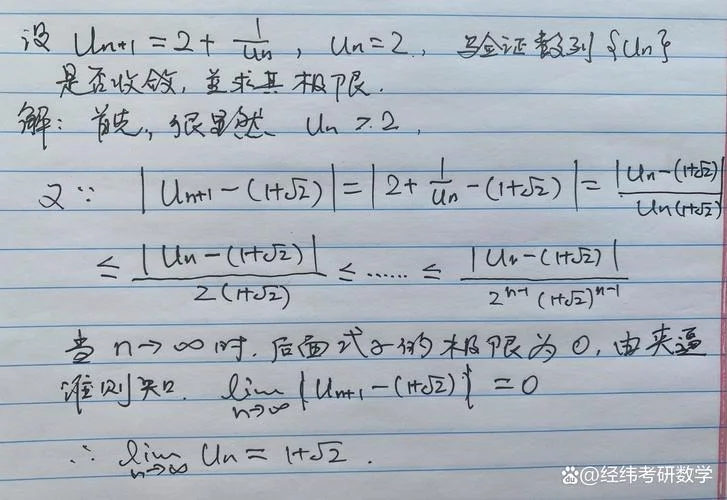 设 Un+1 = 2 + 1/Un , Un = 2 , 验证数列 {Un}
是否收敛, 並求其极限.
解: 首先, 很显然 Un ≥ 2 ,
又∵ |Un+1 - (1+√2)| = |2 + 1/Un - (1+√2)| = |Un - (1+√2)| / Un(1+√2)
≤ |Un - (1+√2)| / 2(1+√2) ≤ …… ≤ |U1 - (1+√2)| / 2^(n-1) (1+√2)^(n-1)
当 n→∞ 时, 后面式子的极限为 0, 由夹逼
准则知. lim n→∞ |Un+1 - (1+√2)| = 0
∴ lim n→∞ Un = 1+√2 .
@经纬考研数学